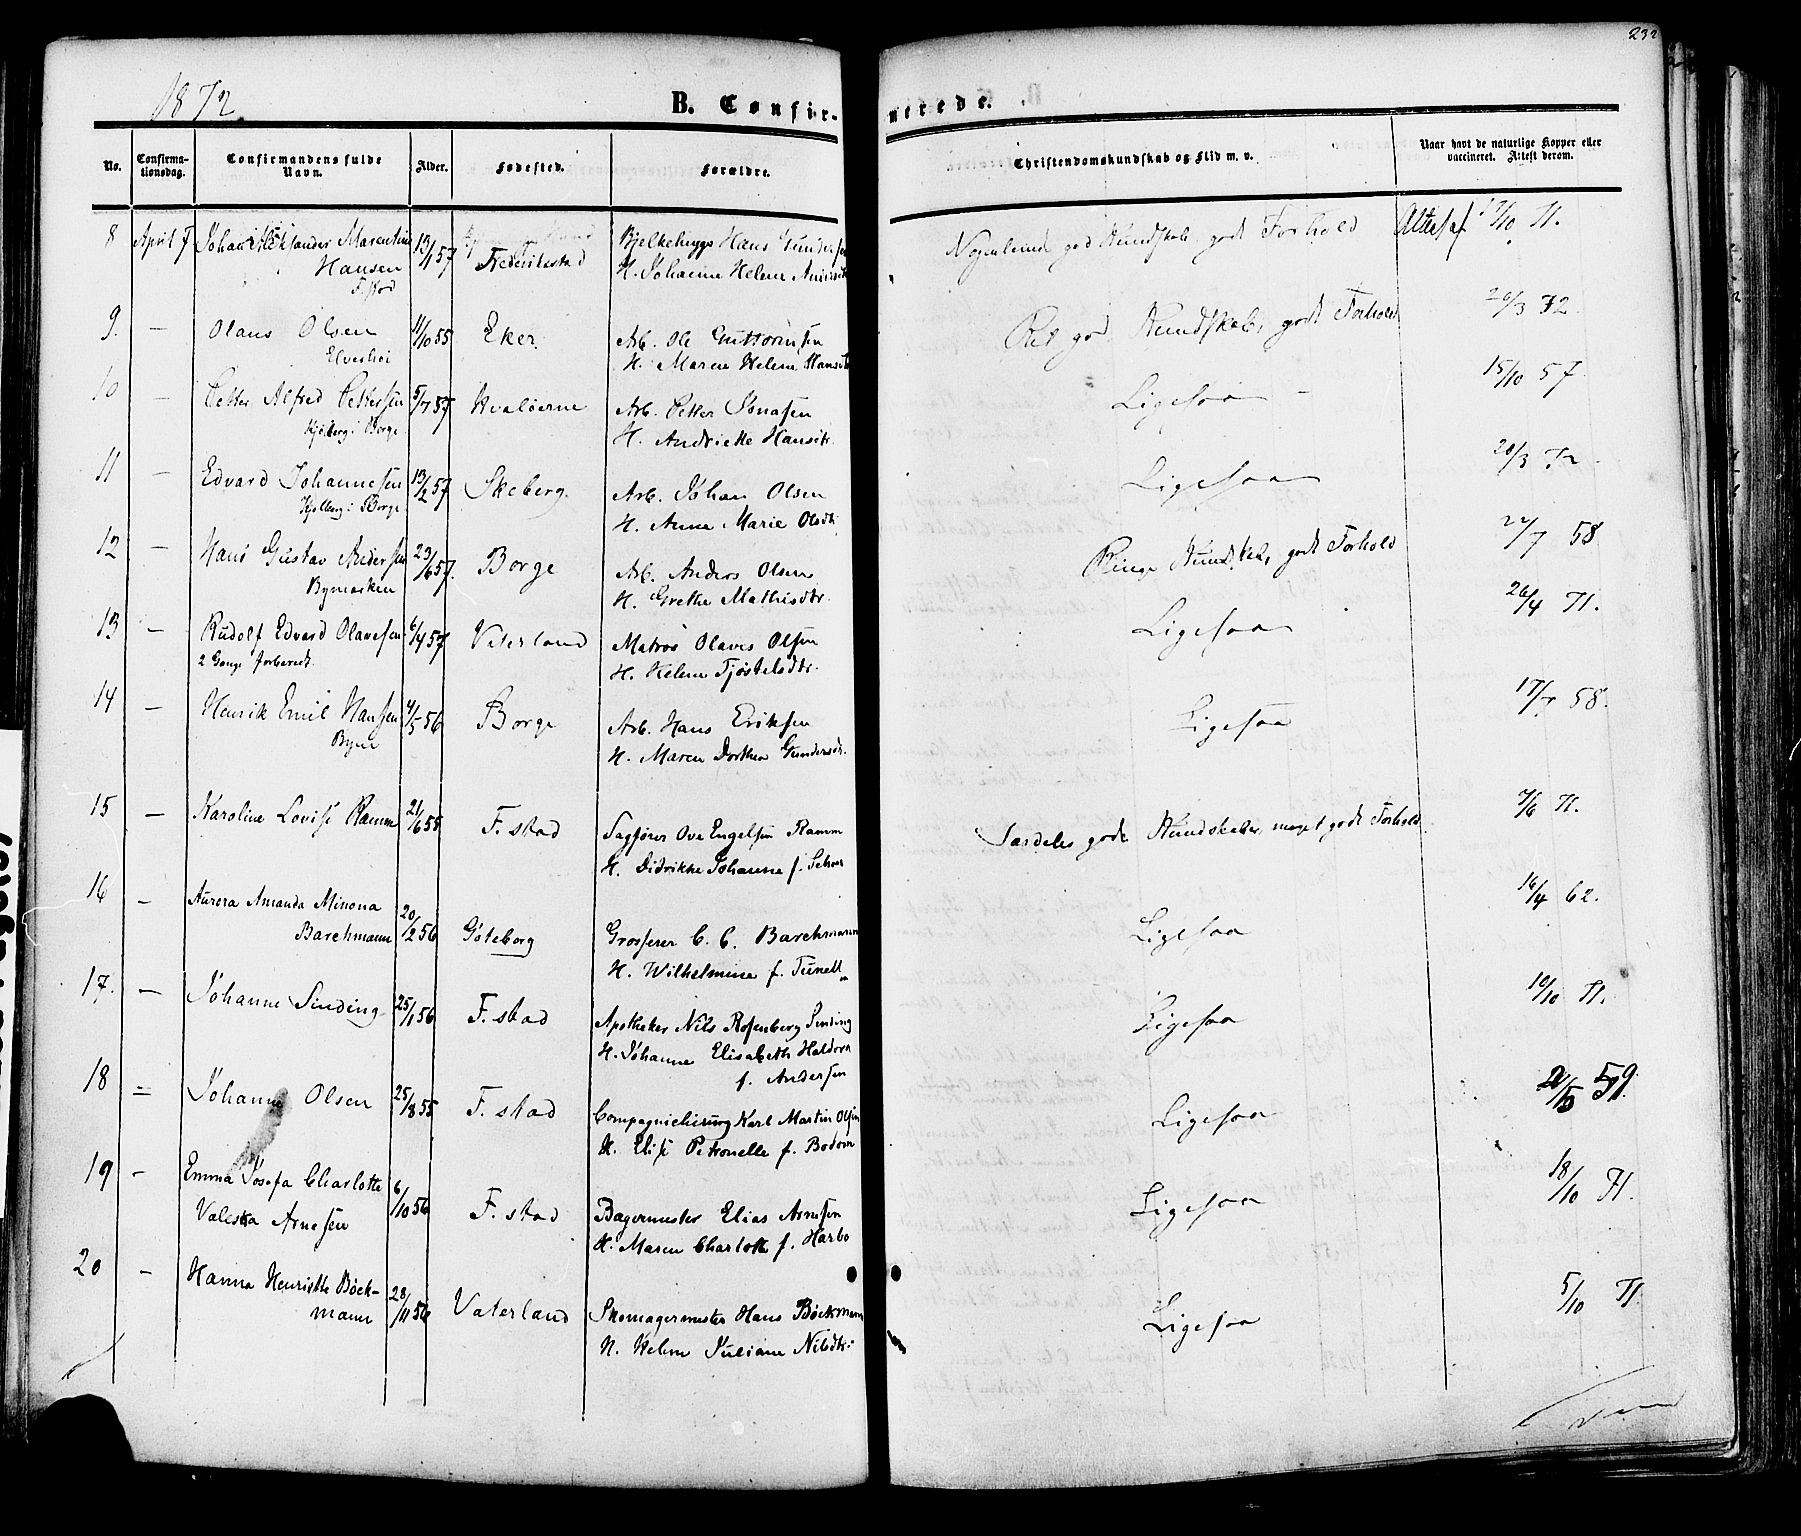 232
1872.
B. Confir-
merede.
No.
Confirma-
tionsdag.
Confirmandens fulde
Navn.
Alder.
Fødested.
Forældre.
Christendomskundskab og Flid m. v.
Naar havt de naturlige Kopper eller
vaccineret. Attest derom.
8 April 7 Johan Aleksander Marentius 13/1 57 Bjelkehugger Hans Gundersen
Hansen Frederiksstad H. Johanne Helene
F. stad
Nogenlunde god Kundskab, godt Forhold 17/10 71.
9. — Olaus Olsen 11/10 55 Eker. Arb. Ole Guttormsen
Elveshøi H. Maren Helene Hansdtr
Ret god Kundskab, godt Forhold 20/3 72.
10 — Petter Alfred Pettersen 5/7 57 Hvaløerne Arb. Petter Jonasen
Kjølberg i Borge H. Andriette Hansdtr.
Ligesaa — 15/10 57.
11 — Edvard Johannesen 13/2 57 Skeberg. Arb. Johan Olsen
Kjølberg i Borge H. Anne Marie Olsdtr
Ligesaa 20/3 72.
12 — Hans Gustav Andersen 23/6 57. Borge Arb. Anders Olsen
Bymarken H. Grethe Mathisdtr.
Ringe Kundskab, godt Forhold 22/7 58
13 — Rudolf Edvard Olavesen 6/4 57 Vaterland Matros Olaves Olsen
2 Gange forberedt. H. Helene Tjøstelsdtr.
Ligesaa 26/4 71.
14 — Henrik Emil Hanssen 4/5 56 Borge Arb. Hans Eriksen
Byen H. Maren Dorthea Gundersdtr.
Ligesaa 17/7 58.
15 — Karoline Lovise Ramm 21/6 55 F. stad Sagfører Ove Engelsen Ramm
H. Didrikke Johanne f.
Særdeles gode Kundskaber, meget godt Forhold. 7/6 71.
16 — Aurora Amanda Minona
Barchmann 20/2 56 Göteborg Grosserer C. C. Barchmann
H. Wilhelmine f.
Ligesaa 16/4 62.
17. — Johanne Sinding 25/1 56 F. stad Apotheker Nils Rosenberg Sinding
H. Johanne Elisabeth Haldora
f. Andersen
Ligesaa 10/10 71.
18 = Johanne Olsen 25/8 55 F. stad Compagniechirurg Karl Martin Olsen
H. Elise Petronelle f. Bodom
Ligesaa 59.
19 — Emma Josefa Charlotte 6/10 56
Valeska Arnesen F. stad Bagermester Elias Arnesen
H. Maren Charlotte f. Harbo
Ligesaa 18/10 71.
20 — Hanna Henriette Böck-
mann 28/11 56 Vaterland Skomagermester Hans Böckmann
H. Helene Juliane Nilsdtr.
Ligesaa 5/10 71.